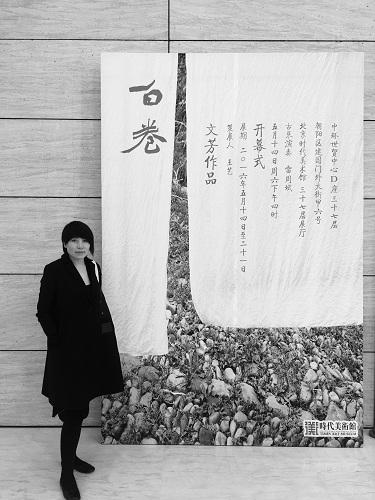 白卷
中环世贸中心D座三十七层
朝阳区建国门外大街甲六号
北京时代美术馆 三十七层展厅
古琴演奏 雷周斌
五月十四日周六下午四时
开幕式
策展人 王艺
展期 二〇一六年五月十四日至二十一日
文芳作品
時代美術館
TIMES ART MUSEUM